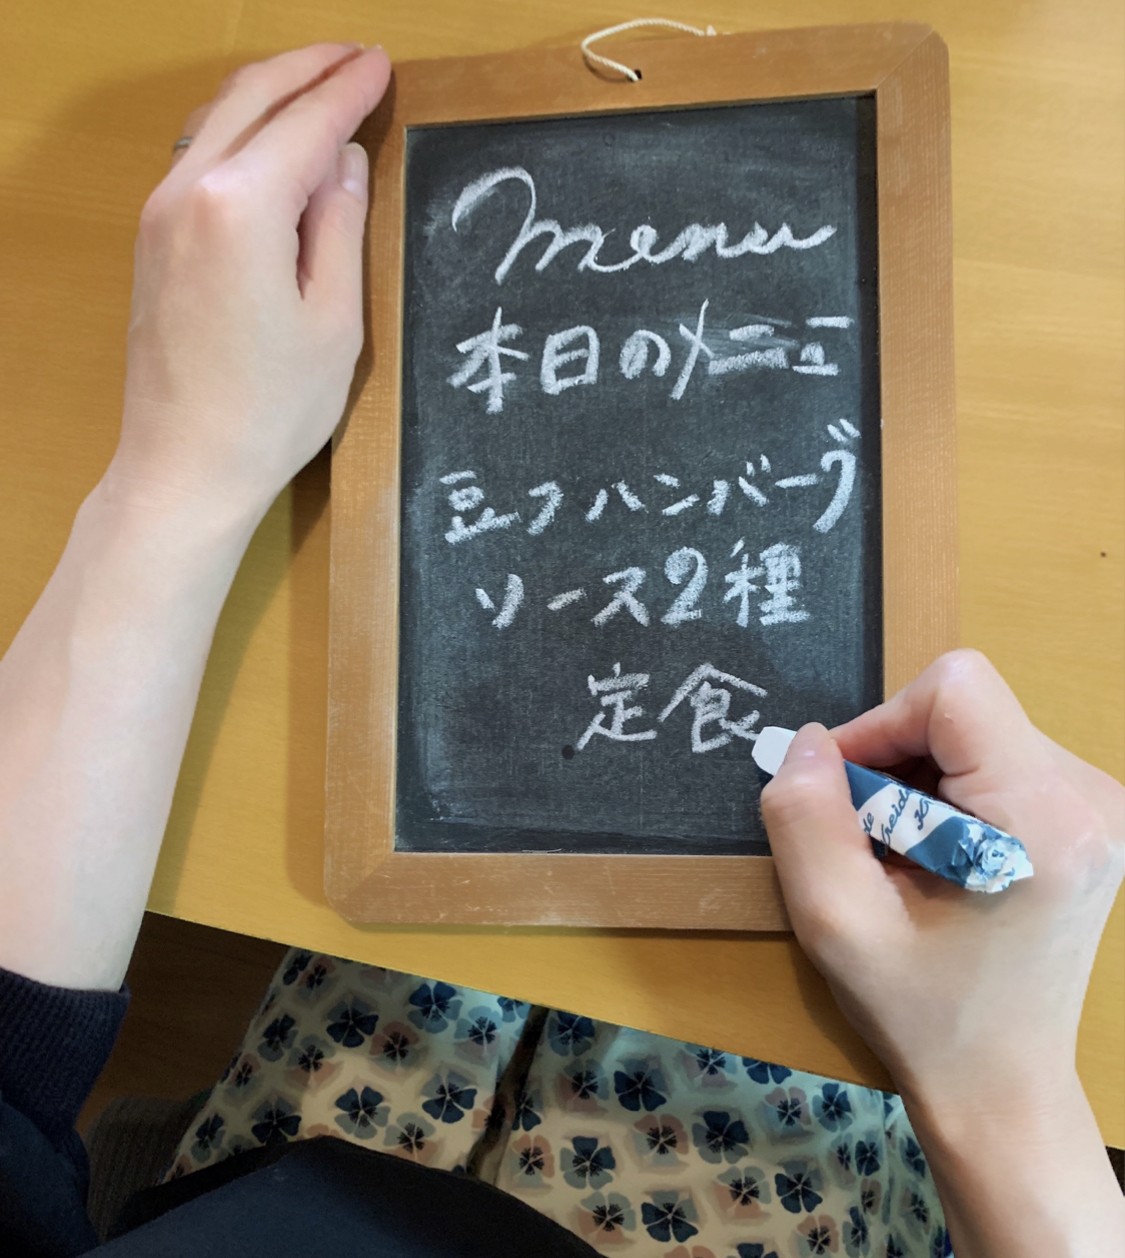 Menu
本日のメニュー
豆フハンバーグ
ソース2種
定食